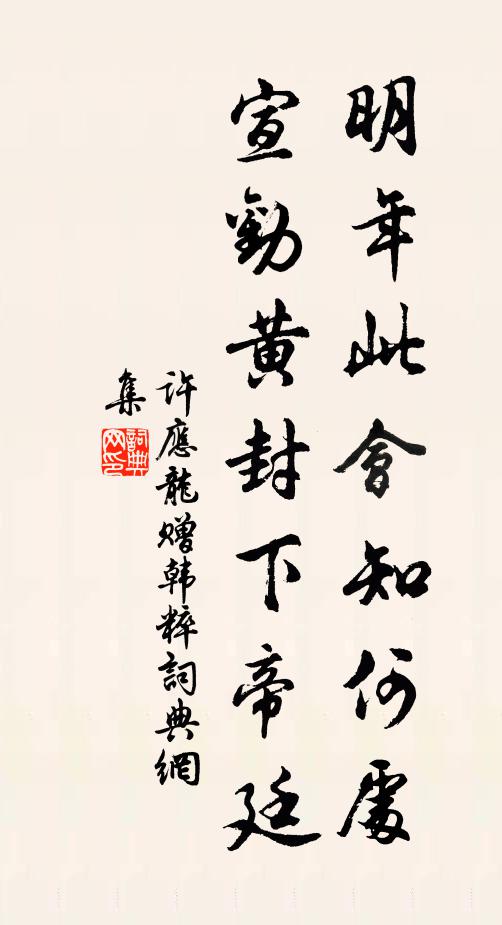 明年此會知何處
宣勸黃封下帝廷
許應龍贈韩粹詞典網
集
詞典
网印